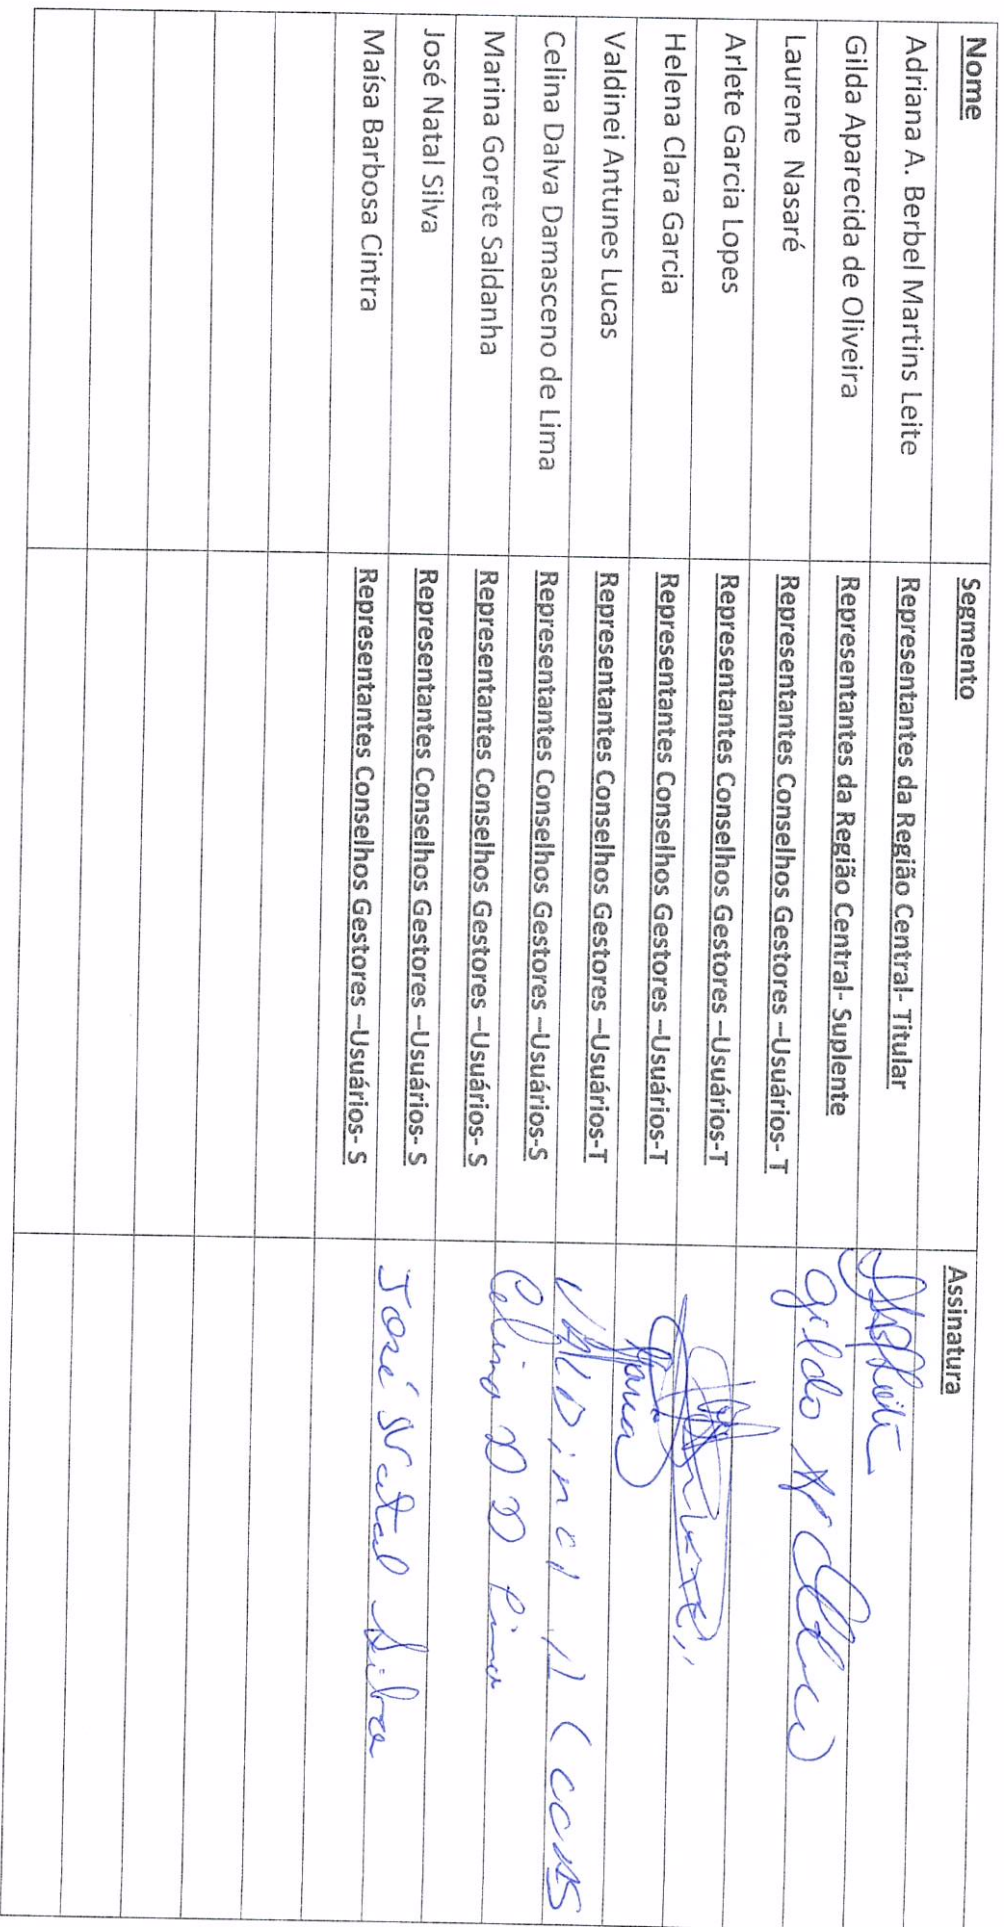 Nome Segmento Assinatura
Adriana A. Berbel Martins Leite Representantes da Região Central- Titular
Gilda Aparecida de Oliveira Representantes da Região Central- Suplente Gilda Ap
Laurene Nasaré Representantes Conselhos Gestores –Usuários- T
Arlete Garcia Lopes Representantes Conselhos Gestores –Usuários-T
Helena Clara Garcia Representantes Conselhos Gestores –Usuários-T
Valdinei Antunes Lucas Representantes Conselhos Gestores –Usuários-T VALDinei A LUCAS
Celina Dalva Damasceno de Lima Representantes Conselhos Gestores –Usuários-S Celina D D Lima
Marina Gorete Saldanha Representantes Conselhos Gestores –Usuários- S
José Natal Silva Representantes Conselhos Gestores –Usuários- S José Natal Silva
Maísa Barbosa Cintra Representantes Conselhos Gestores –Usuários- S